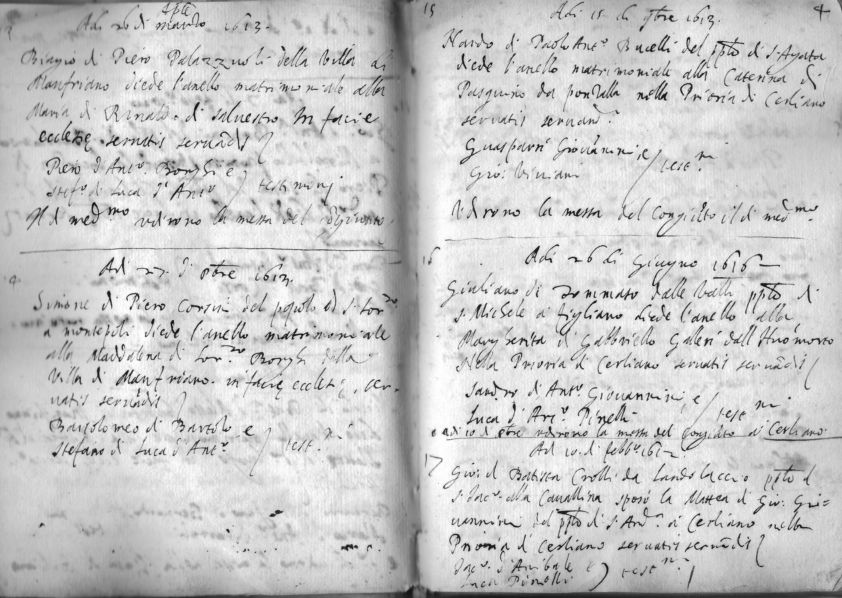 Adi 26 di marzo 1613.
Biagio di Piero Palazzuoli della Villa di
Manfriano diede l'anello matrimoniale alla
Maria di Rinaldo di salvestro In facie
ecclesię servatis servādis
Piero d'Antº. Borghi e
Stefº di Luca d'Antº testimonj
Il di medmo udirono la messa del
Adi 27 d' 8bre 1613.
Simone di Piero Corsini del popolo di S. Lorzo
a montepoli diede l'anello matrimoniale
alla Maddalena di Lorzo Borghi dalla
Villa di Manfriano. in facię ecclesię, ser-
vatis servādis
Bartolomeo di Bartolo e
Stefano di Luca d'Antº test.ni
15
4
Adi 15 di 9bre 1613.
Nardo di Paolo Antº Bucelli del ppto di S. Agata
diede l'anello matrimoniale alla Caterina di
Pasquino da ponzalla nella Prioria di Cerliano
servatis servand.
Guasparri Giovannini e
Gio: Viviani test.ni
Udirono la messa del Congiūto il di medmo.
16
Adi 26 di Giugno 1616
Giuliano di Tommaso dalle Valli ppto di
S. Michele a Figliano diede l'anello alla
Margherita di Gabbriello Galleri dall'Huomorto
Nella Prioria di Cerliano servatis servādis
Sandro di Antº Giovannini e
Luca d'Antº. Pinelli test.ni
e adi 10 di 8bre udirono la messa del Congiūto a Cerliano
17
Ad 10. di febbº 161
Gio: di Batista Crolli da Landolaccio ppto d
S. Jacº. alla Cavallina sposò la Mattea di Gio: Gio=
vannini del ppto di S. And.ª a Cerliano nella
Prioria di Cerliano servatis servādis
Jacº. d'Anibale e
Luca Pinelli test.ni